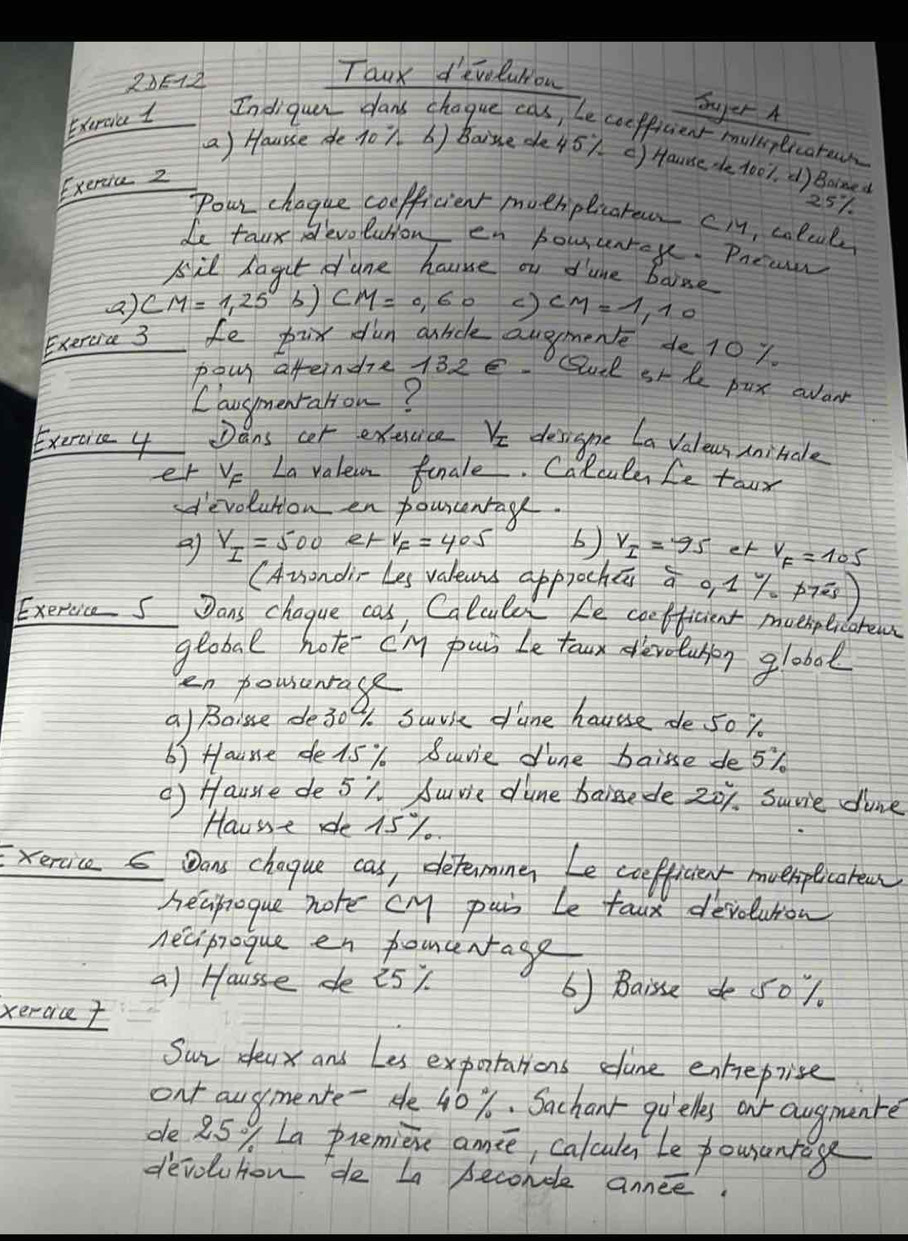 2DE12 Taux d'évolution
Sujet A
Exercice 1 Indiquer dans chaque cas, le coefficient multiplicateur
a) Hausse de 10% b) Baisse de 45% c) Hausse de 100% d) Baisse d
25%
Exercice 2
Pour chaque coefficient multiplicateur CM, calculer
le taux d'évolution en pourcentage. Préciser
s'il s'agit d'une hausse ou d'une baisse
a) CM = 1,25 b) CM = 0,60 c) CM = 1,10
Exercice 3 Le prix d'un article augmente de 10%.
pour atteindre 132 €. Quel est le prix avant
L'augmentation ?
Exercice 4 Dans cet exercice V_I désigne La Valeur initiale
et V_F La valeur finale. Calculer Le taux
d'évolution en pourcentage.
a) V_I = 500 et V_F = 405 b) V_I = 95 et V_F = 105
(Arrondir Les valeurs approchées à 0,1 % près)
Exercice 5 Dans chaque cas, Calculer Le coefficient multiplicateur
global noté CM puis Le taux d'évolution global
en pourcentage
a) Baisse de 30% suivie d'une hausse de 50%
b) Hausse de 15% suivie d'une baisse de 5%
c) Hausse de 5% suivie d'une baisse de 20% suivie d'une
Hausse de 15%.
Exercice 6 Dans chaque cas, déterminer Le coefficient multiplicateur
réciproque noté CM puis Le taux d'évolution
réciproque en pourcentage
a) Hausse de 25% b) Baisse de 50%.
xercice 7
Sur deux ans Les exportations d'une entreprise
ont augmenté de 40%. Sachant qu'elles ont augmenté
de 25% La première année, calculer Le pourcentage
d'évolution de La seconde année.